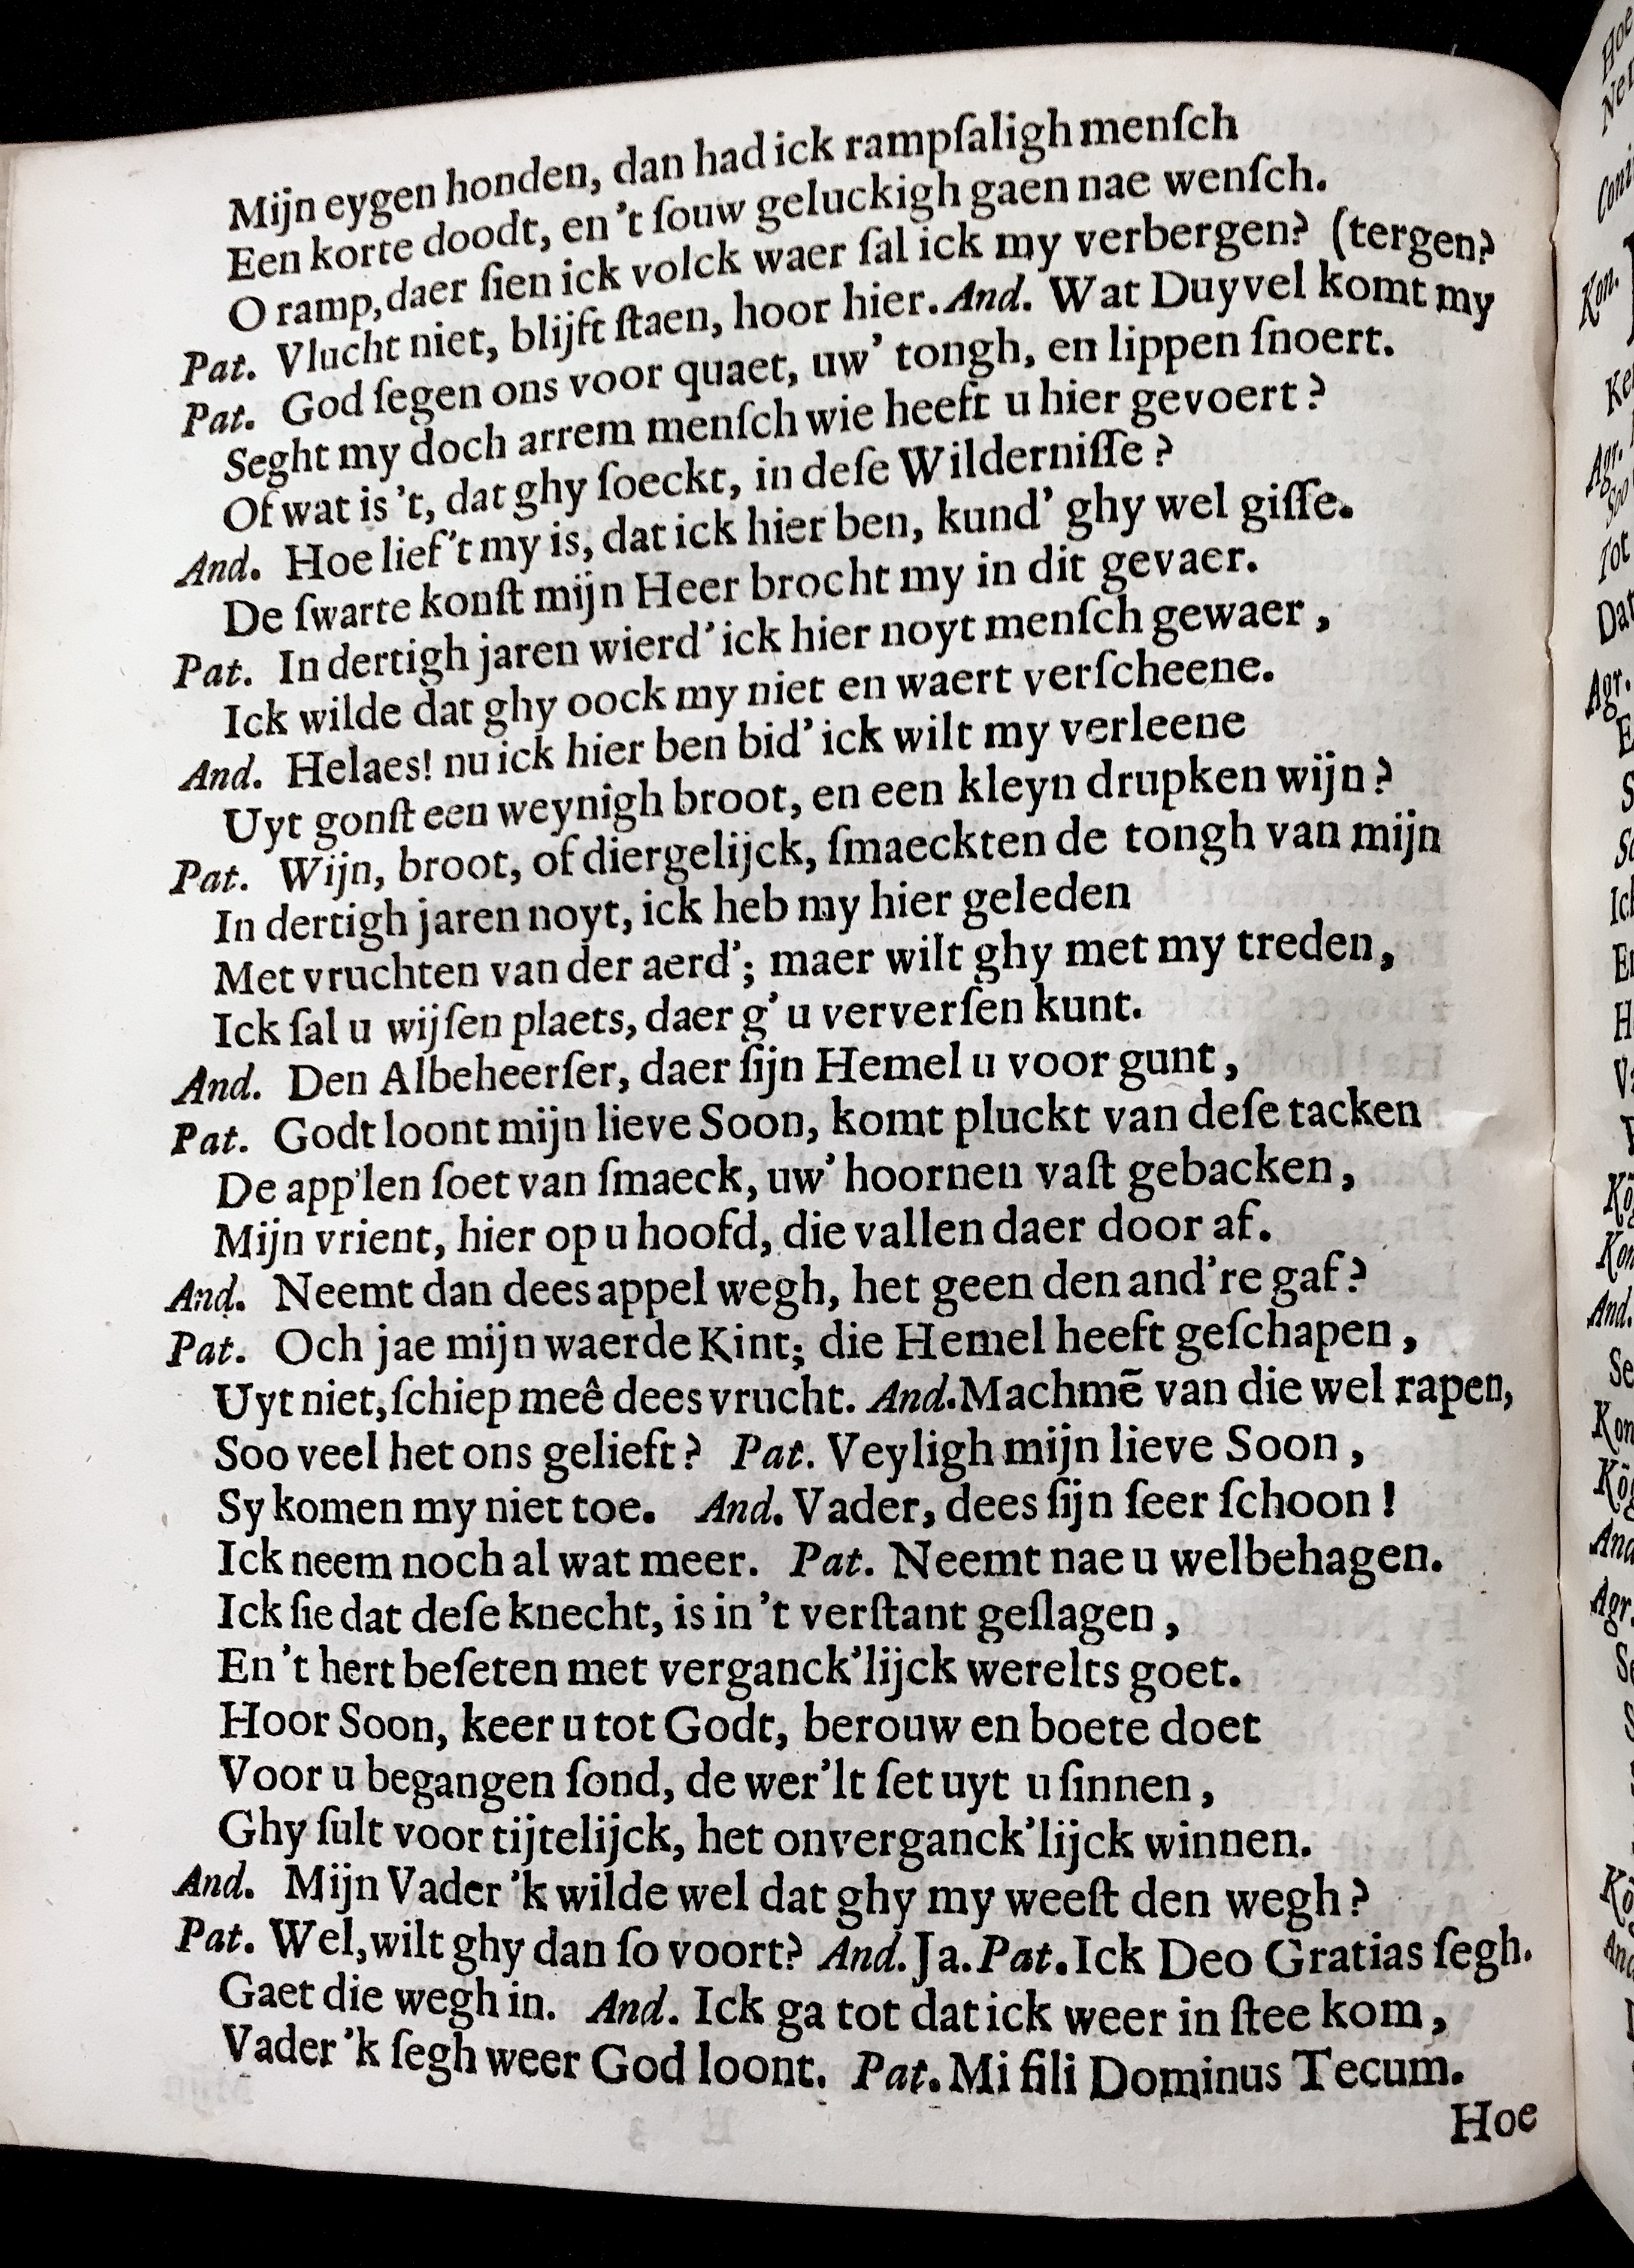 Mijn eygen honden, dan had ick rampſaligh menſch
Een korte doodt, en 't ſouw geluckigh gaen nae wenſch.
O ramp, daer ſien ick volck waer ſal ick my verbergen? (tergen?
Pat. Vlucht niet, blijft ſtaen, hoor hier. And. Wat Duyvel komt my
Pat. God ſegen ons voor quaet, uw' tongh, en lippen ſnoert.
Seght my doch arrem menſch wie heeft u hier gevoert?
Of wat is 't, dat ghy ſoeckt, in deſe Wilderniſſe?
And. Hoe lief't my is, dat ick hier ben, kund' ghy wel giſſe.
De ſwarte konſt mijn Heer brocht my in dit gevaer.
Pat. In dertigh jaren wierd' ick hier noyt menſch gewaer,
Ick wilde dat ghy oock my niet en waert verſcheene.
And. Helaes! nu ick hier ben bid' ick wilt my verleene
Uyt gonſt een weynigh broot, en een kleyn drupken wijn?
Pat. Wijn, broot, of diergelijck, ſmaeckten de tongh van mijn
In dertigh jaren noyt, ick heb my hier geleden
Met vruchten van der aerd'; maer wilt ghy met my treden,
Ick ſal u wijſen plaets, daer g' u ververſen kunt.
And. Den Albeheerſer, daer ſijn Hemel u voor gunt,
Pat. Godt loont mijn lieve Soon, komt pluckt van deſe tacken
De app'len ſoet van ſmaeck, uw' hoornen vaſt gebacken,
Mijn vrient, hier op u hoofd, die vallen daer door af.
And. Neemt dan dees appel wegh, het geen den and're gaf?
Pat. Och jae mijn waerde Kint; die Hemel heeft geſchapen,
Uyt niet, ſchiep meê dees vrucht. And. Machmẽ van die wel rapen,
Soo veel het ons gelieft? Pat. Veyligh mijn lieve Soon,
Sy komen my niet toe. And. Vader, dees ſijn ſeer ſchoon!
Ick neem noch al wat meer. Pat. Neemt nae u welbehagen.
Ick ſie dat deſe knecht, is in 't verſtant geſlagen,
En 't hert beſeten met verganck'lijck werelts goet.
Hoor Soon, keer u tot Godt, berouw en boete doet
Voor u begangen ſond, de wer'lt ſet uyt u ſinnen,
Ghy ſult voor tijtelijck, het onverganck'lijck winnen.
And. Mijn Vader 'k wilde wel dat ghy my weeſt den wegh?
Pat. Wel, wilt ghy dan ſo voort? And. Ja. Pat. Ick Deo Gratias ſegh.
Gaet die wegh in. And. Ick ga tot dat ick weer in ſtee kom,
Vader 'k ſegh weer God loont. Pat. Mi fili Dominus Tecum.
Hoe